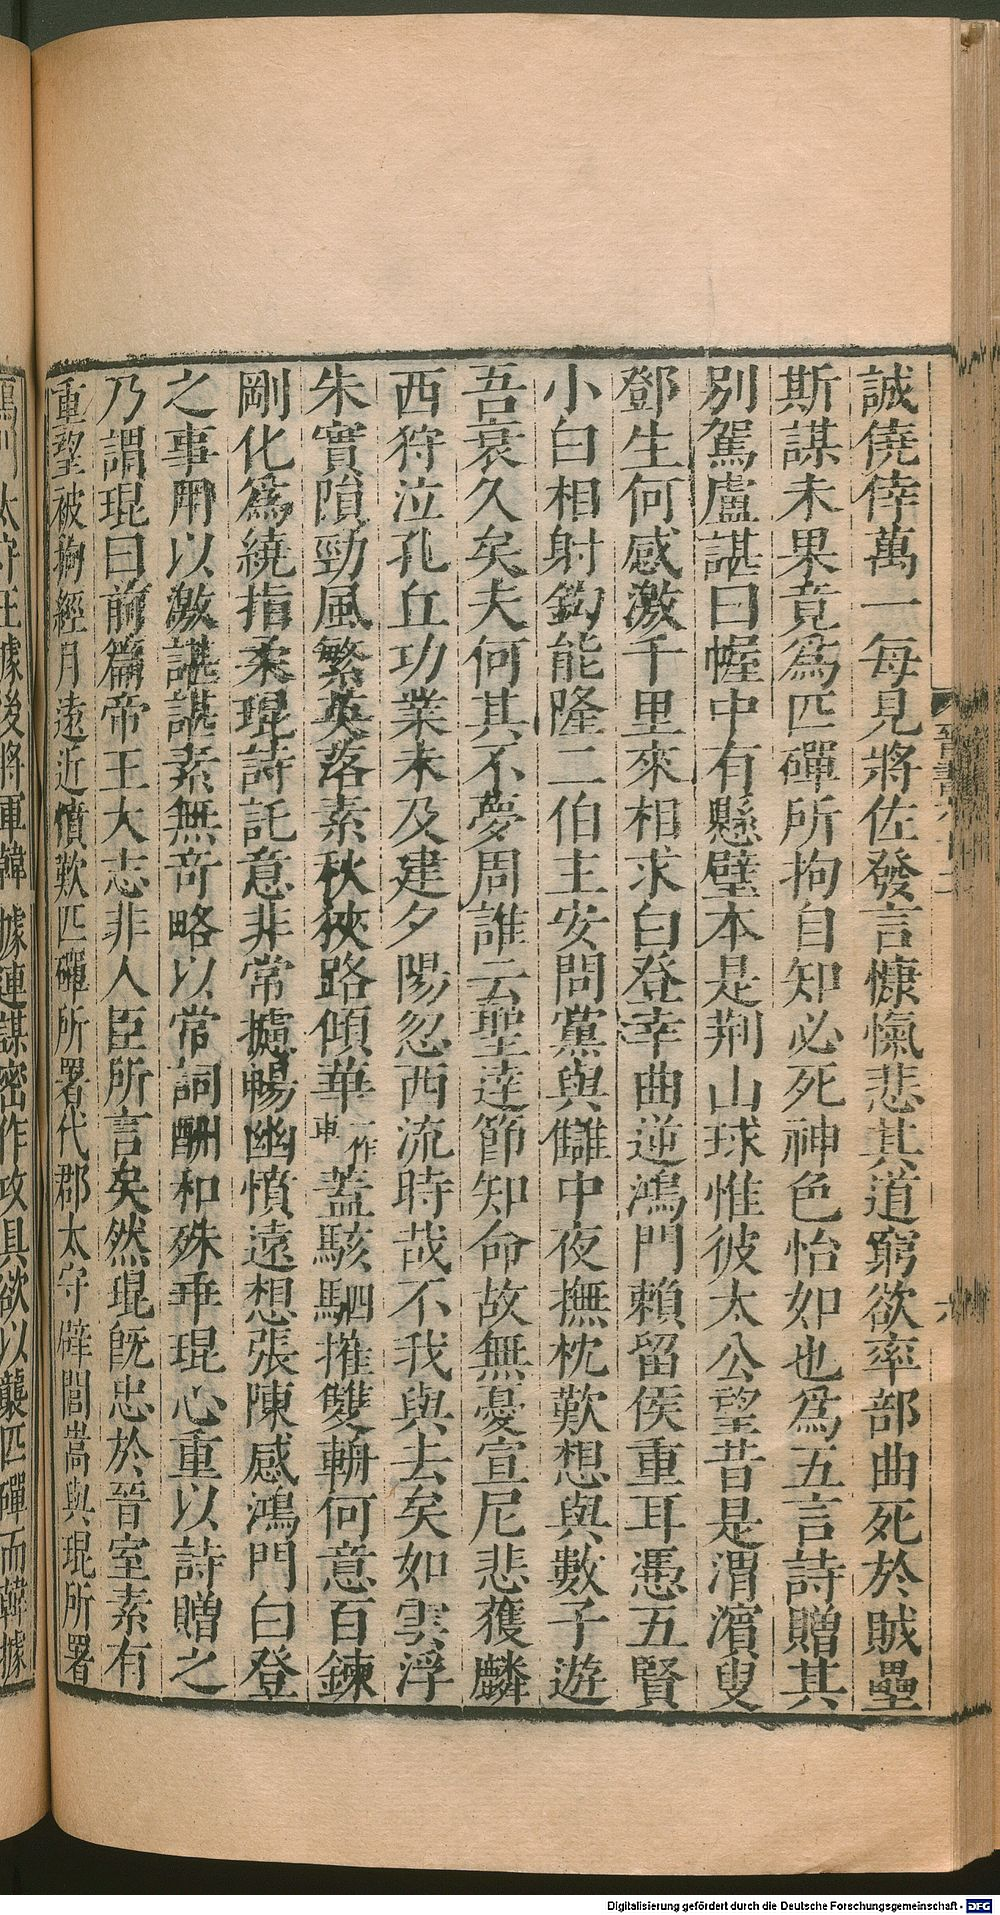 誠僥倖萬一每見將佐發言慷慨悲其道窮欲率部曲死於賊壘
斯謀未果竟爲匹磾所拘自知必死神色怡如也爲五言詩贈其
別駕盧諶曰幄中有懸璧本是荆山球惟彼太公望昔是渭濱叟
鄧生何感激千里來相求白登幸曲逆鴻門賴留侯重耳憑五賢
小白相射鈎能隆二伯主安問黨與讎中夜撫枕歎想與數子遊
吾衰久矣夫何其不夢周誰云聖達節知命故無憂宣尼悲獲麟
西狩泣孔丘功業未及建夕陽忽西流時哉不我與去矣如雲浮
朱實隕勁風繁英落素秋狹路傾華一作車蓋駭駟摧雙輈何意百鍊
剛化爲繞指柔琨詩託意非常攄暢幽憤遠想張陳感鴻門白登
之事用以激諶諶素無奇略以常詞酬和殊乖琨心重以詩贈之
乃謂琨曰前篇帝王大志非人臣所言矣然琨旣忠於晉室素有
重望被拘經月遠近憤歎匹磾所署代郡太守辟閭嵩與琨所署
鴈門太守王據後將軍韓據連謀密作攻具欲以襲匹磾而韓據
六
Digitalisierung gefördert durch die Deutsche Forschungsgemeinschaft - DFG